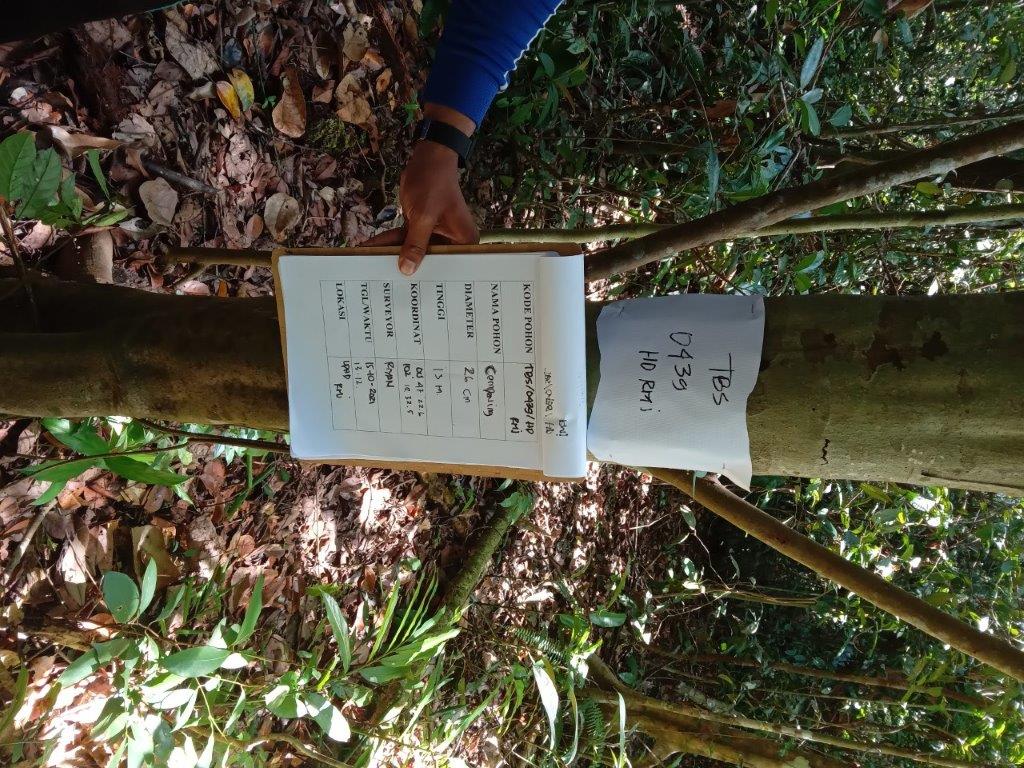 TBS
0439
HD RMi
KODE POHON TBS/0439/HD
RMj
NAMA POHON
DIAMETER 26 cm
TINGGI 13 M.
KOORDINAT 00 47 22.6
102 12 32.5
SURVEYOR RIYAN
TGL/WAKTU 15-10-2021
13.12.
LOKASI LPHD
RMj